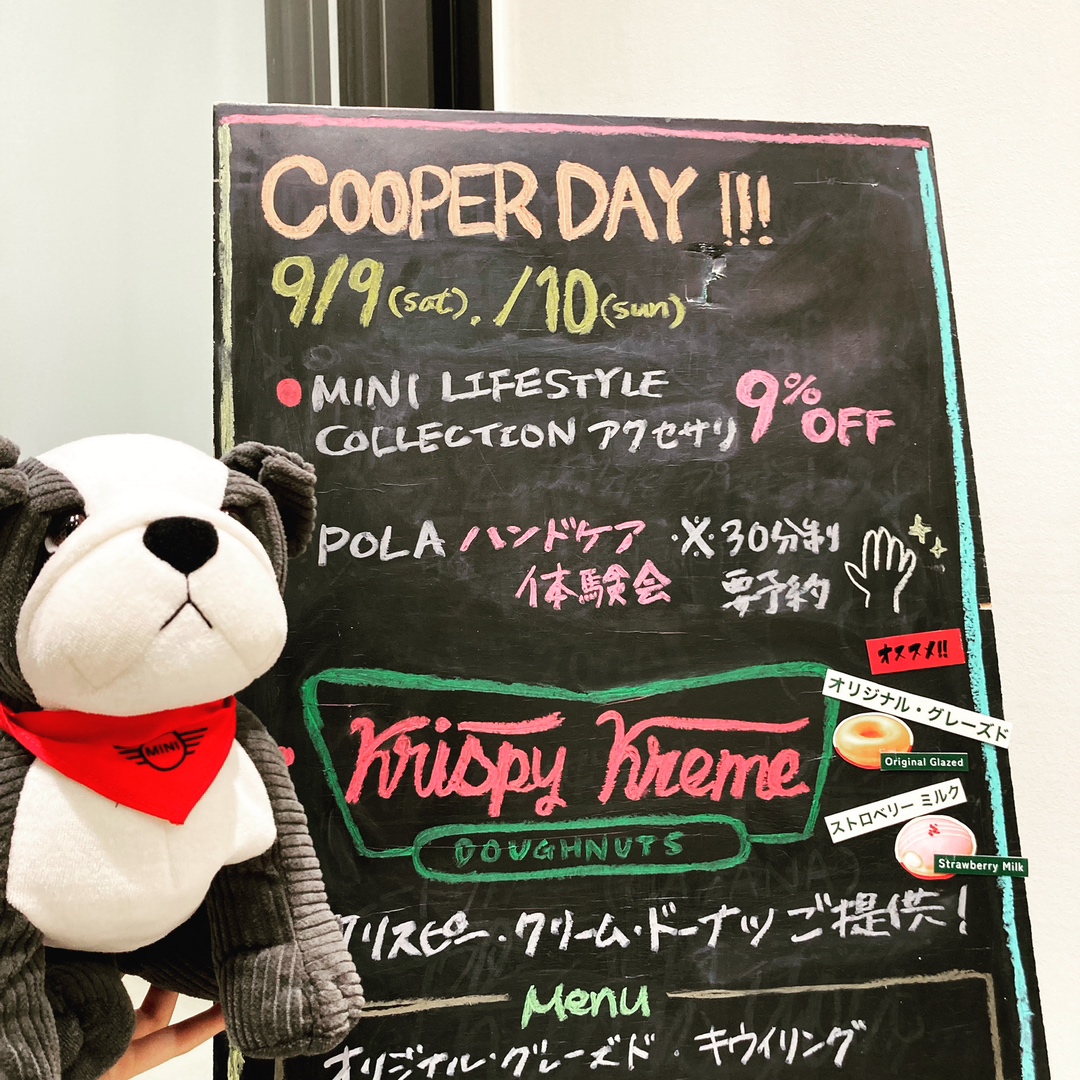 COOPER DAY !!!
9/9 (sat). /10 (sun)
MINI LIFESTYLE
COLLECTION アクセサリ 9% OFF
POLA ハンドケア ※30分制
体験会 要予約
オススメ!!
オリジナル・グレーズド
Original Glazed
Krispy Kreme
DOUGHNUTS
ストロベリー ミルク
Strawberry Milk
クリスピー・クリーム・ドーナツ ご提供!
Menu
オリジナル・グレーズド・キウイリング
MINI